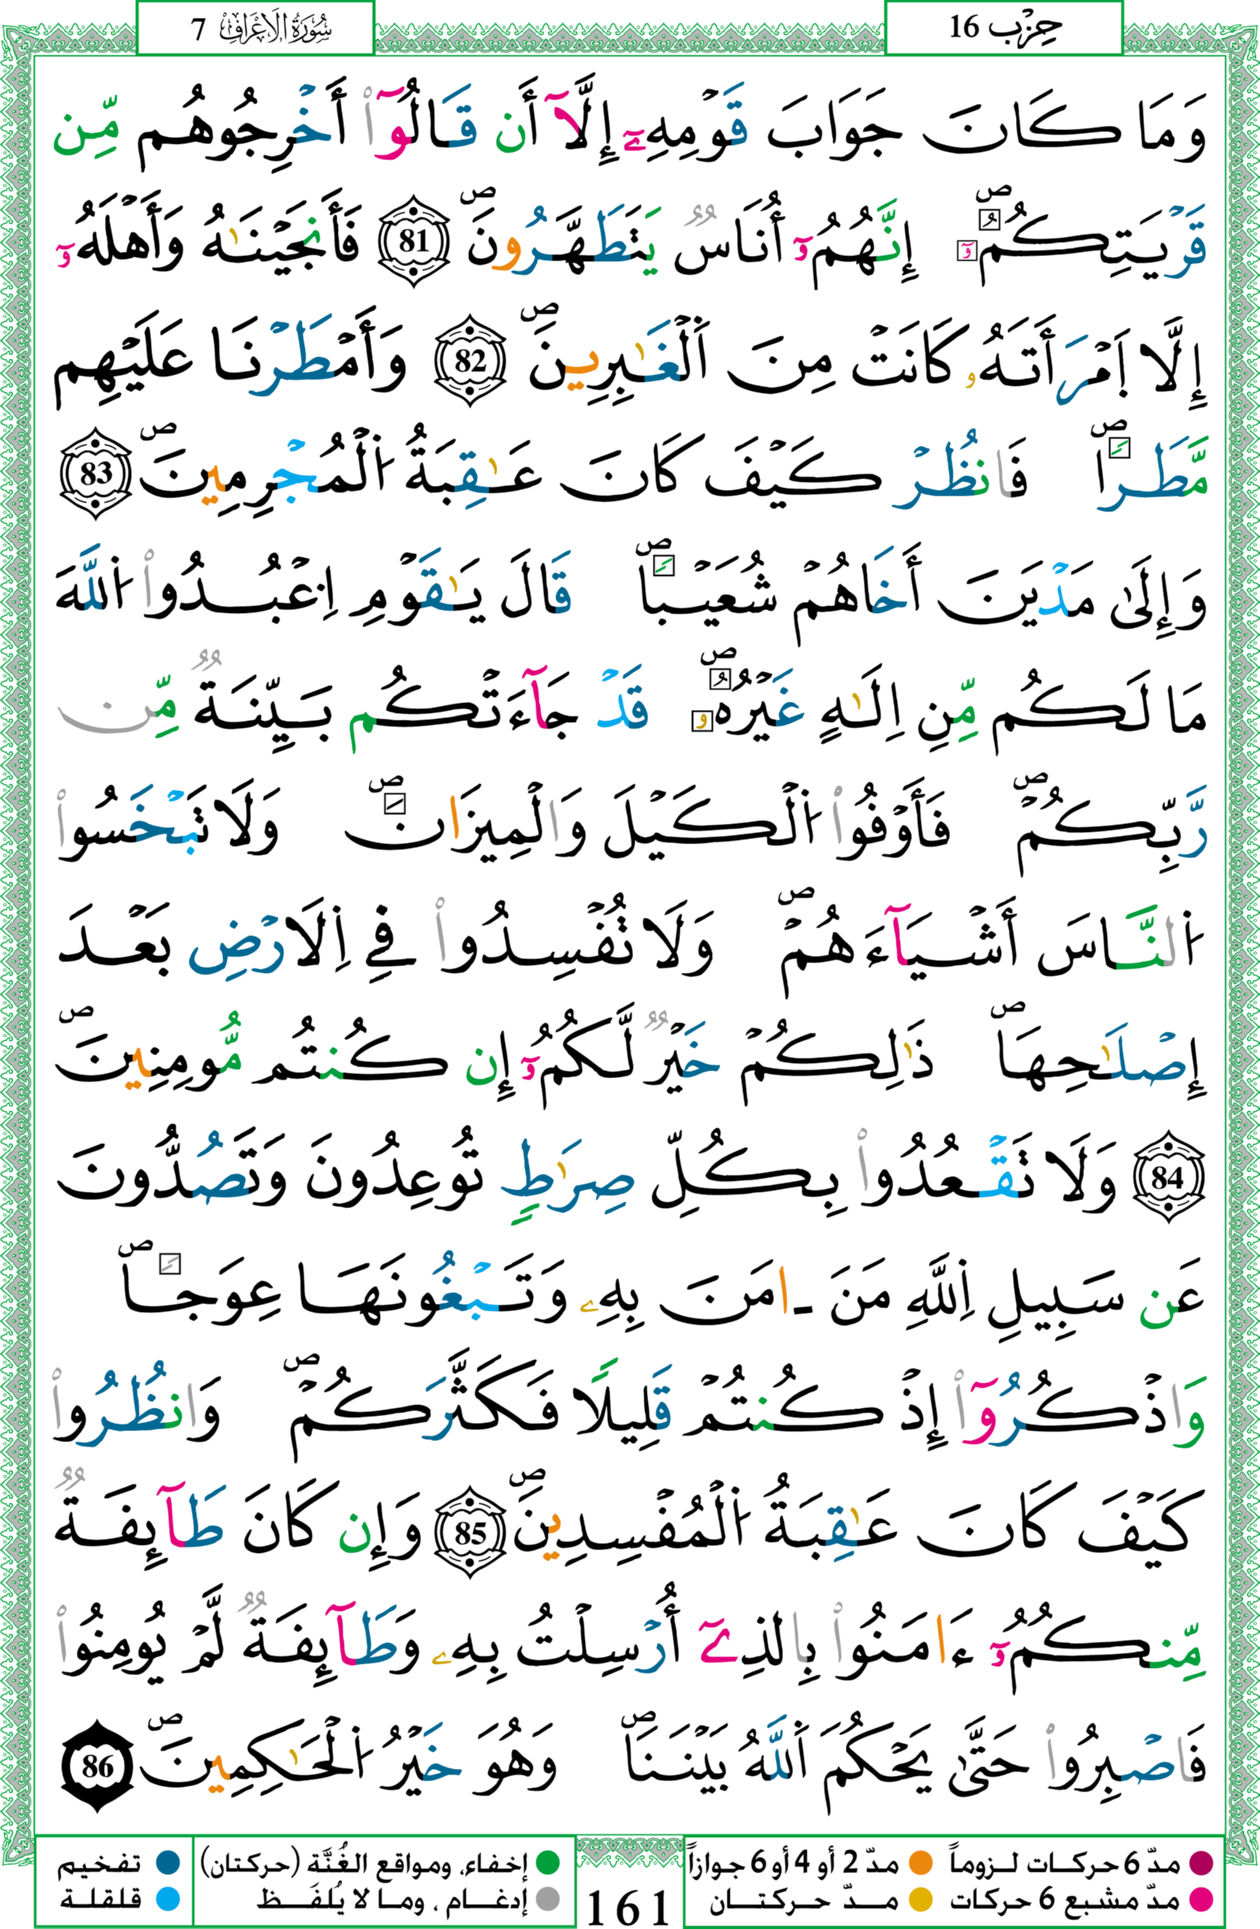 سُورَةُ الْأَعْرَافِ 7
حِزْب 16
وَمَا كَانَ جَوَابَ قَوْمِهِۦٓ إِلَّآ أَن قَالُوٓا۟ أَخْرِجُوهُم مِّن
قَرْيَتِكُمُۥٓۖ إِنَّهُمُۥٓ أُنَاسٌ يَتَطَهَّرُونَۖ 81 فَأَنجَيْنَٰهُ وَأَهْلَهُۥٓ
إِلَّا اَمْرَأَتَهُۥ كَانَتْ مِنَ اَلْغَٰبِرِينَۖ 82 وَأَمْطَرْنَا عَلَيْهِم
مَّطَراٗۖ فَانظُرْ كَيْفَ كَانَ عَٰقِبَةُ اُلْمُجْرِمِينَۖ 83
وَإِلَىٰ مَدْيَنَ أَخَاهُمْ شُعَيْباٗۖ قَالَ يَٰقَوْمِ اِعْبُدُوا۟ اُللَّهَ
مَا لَكُم مِّنِ اِلَٰهٍ غَيْرُهُۥۖ قَدْ جَآءَتْكُم بَيِّنَةٌ مِّن
رَّبِّكُمْۖ فَأَوْفُوا۟ اُلْكَيْلَ وَالْمِيزَانَۖ وَلَا تَبْخَسُوا۟
اُلنَّاسَ أَشْيَآءَهُمْۖ وَلَا تُفْسِدُوا۟ فِے اِلَارْضِ بَعْدَ
إِصْلَٰحِهَاۖ ذَٰلِكُمْ خَيْرٌ لَّكُمُۥٓ إِن كُنتُم مُّومِنِينَۖ
84 وَلَا تَقْعُدُوا۟ بِكُلِّ صِرَٰطٍ تُوعِدُونَ وَتَصُدُّونَ
عَن سَبِيلِ اِللَّهِ مَنَ ـامَنَ بِهِۦ وَتَبْغُونَهَا عِوَجاٗۖ
وَاذْكُرُوٓا۟ إِذْ كُنتُمْ قَلِيلًا فَكَثَّرَكُمْۖ وَانظُرُوا۟
كَيْفَ كَانَ عَٰقِبَةُ اُلْمُفْسِدِينَۖ 85 وَإِن كَانَ طَآئِفَةٌ
مِّنكُمُۥٓ ءَامَنُوا۟ بِالذِےٓ أُرْسِلْتُ بِهِۦ وَطَآئِفَةٌ لَّمْ يُومِنُوا۟
فَاصْبِرُوا۟ حَتَّىٰ يَحْكُمَ اَللَّهُ بَيْنَنَاۖ وَهُوَ خَيْرُ اُلْحَٰكِمِينَۖ 86
مدّ 6 حركات لـزوماً مدّ 2 أو 4 أو 6 جوازاً
مدّ مشبع 6 حركات مـدّ حركتـان
161
إخفاء، ومواقع الغُنَّة (حركتان) تفخيم
إدغام ، وما لا يُلفَـظ قلقلة